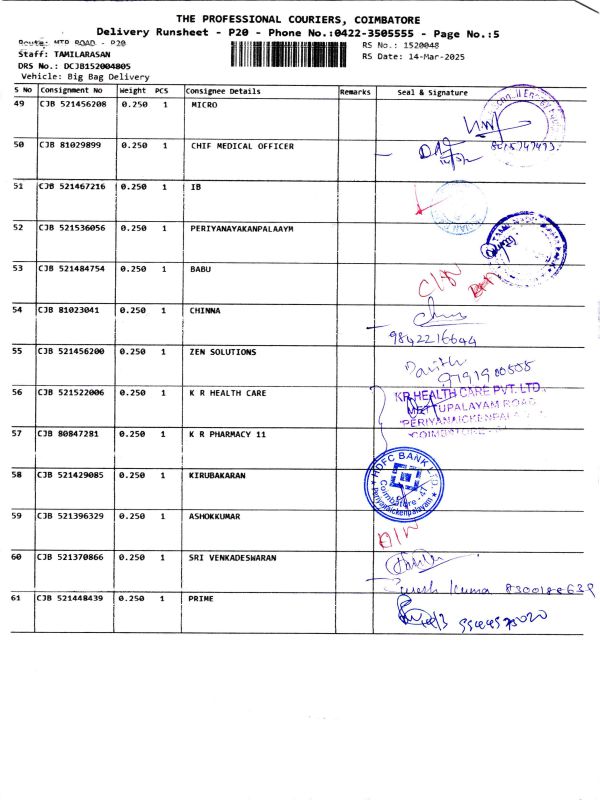 THE PROFESSIONAL COURIERS, COIMBATORE
Delivery Runsheet - P20 - Phone No.:0422-3505555 - Page No.:5
Route: MTP ROAD - P20
RS No.: 1520048
Staff: TAMILARASAN
RS Date: 14-Mar-2025
DRS No.: DCJB152004805
Vehicle: Big Bag Delivery
S No Consignment No Weight PCS Consignee Details Remarks Seal & Signature
49 CJB 521456208 0.250 1 MICRO
50 CJB 81029899 0.250 1 CHIF MEDICAL OFFICER
51 CJB 521467216 0.250 1 IB
52 CJB 521536056 0.250 1 PERIYANAYAKANPALAAYM
53 CJB 521484754 0.250 1 BABU
54 CJB 81023041 0.250 1 CHINNA
9842216644
55 CJB 521456200 0.250 1 ZEN SOLUTIONS
56 CJB 521522006 0.250 1 K R HEALTH CARE
KR HEALTH CARE PVT. LTD.
METTUPALAYAM ROAD
PERIYANAICKENPALA
COIMBATORE
57 CJB 80847281 0.250 1 K R PHARMACY 11
58 CJB 521429085 0.250 1 KIRUBAKARAN
HDFC BANK LTD.
Coimbatore - 47
Periyanaickenpalayam
59 CJB 521396329 0.250 1 ASHOKKUMAR
60 CJB 521370866 0.250 1 SRI VENKADESWARAN
Suresh Kumar
61 CJB 521448439 0.250 1 PRIME